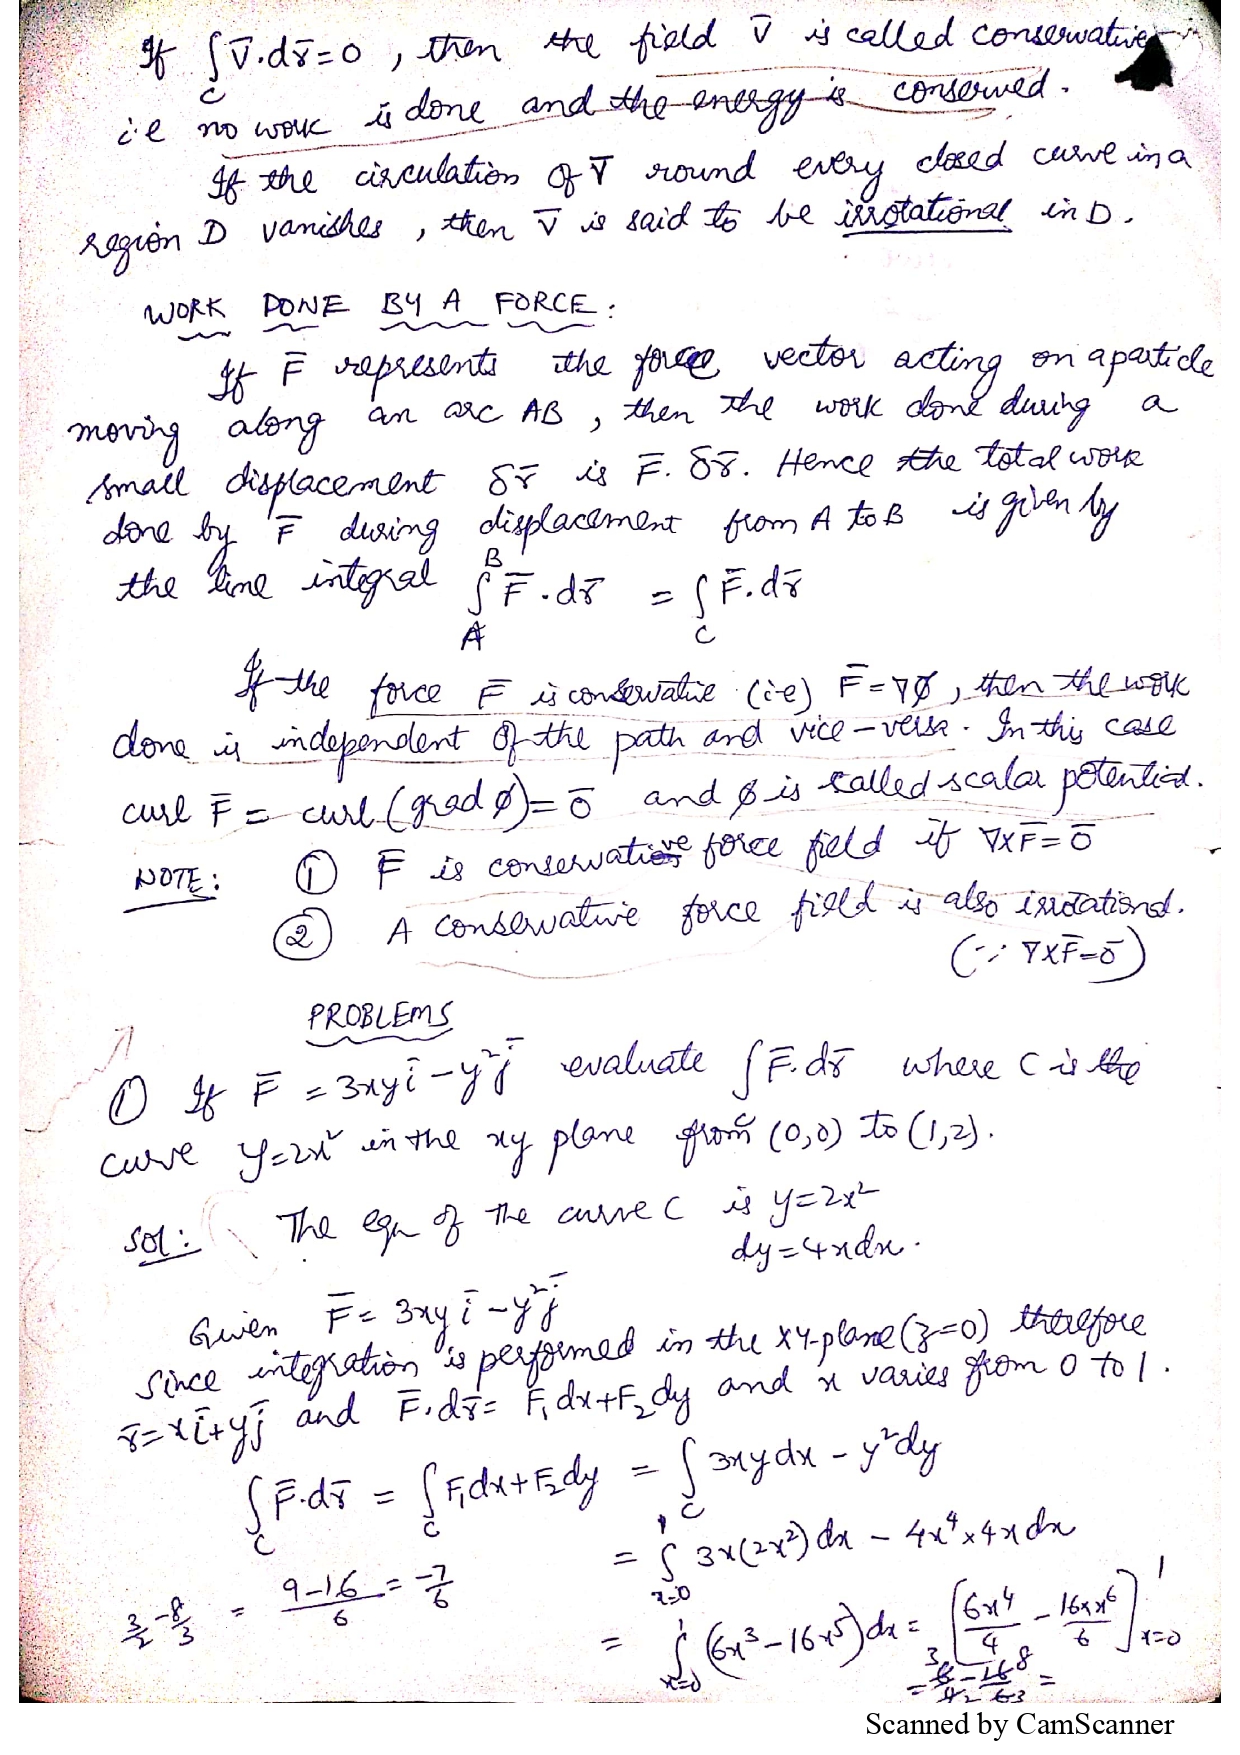 If ∫_C V̄.dr̄=0, then the field V̄ is called conservative
i.e no work is done and the energy is conserved.
If the circulation of V̄ round every closed curve in a
region D vanishes, then V̄ is said to be irrotational in D.
WORK DONE BY A FORCE:
If F̄ represents the force vector acting on a particle
moving along an arc AB, then the work done during a
small displacement δr̄ is F̄.δr̄. Hence the total work
done by F̄ during displacement from A to B is given by
the line integral ∫_A^B F̄.dr̄ = ∫_C F̄.dr̄
If the force F̄ is conservative (i.e) F̄=∇ϕ, then the work
done is independent of the path and vice-versa. In this case
curl F̄ = curl (grad ϕ)=0̄ and ϕ is called scalar potential.
NOTE: ① F̄ is conservative force field if ∇×F̄=0̄
② A conservative force field is also irrotational.
(∵ ∇×F̄=0̄)
PROBLEMS
① If F̄ = 3xy ī - y² j̄ evaluate ∫_C F̄.dr̄ where C is the
curve y=2x² in the xy plane from (0,0) to (1,2).
Sol: The eqn of the curve C is y=2x²
dy=4xdx.
Given F̄= 3xy ī - y² j̄
Since integration is performed in the XY-plane (z=0) therefore
r̄=xī+yj̄ and F̄.dr̄= F₁dx+F₂dy and x varies from 0 to 1.
∫_C F̄.dr̄ = ∫_C F₁dx+F₂dy = ∫_C 3xydx - y²dy
= ∫_{x=0}^1 3x(2x²) dx - 4x⁴ × 4x dx
3/2 - 8/3 = 9-16/6 = -7/6
= ∫_{x=0}^1 (6x³-16x⁵) dx = [6x⁴/4 - 16×x⁶/6]_{x=0}^1
= 6/4 - 16/6 =
Scanned by CamScanner